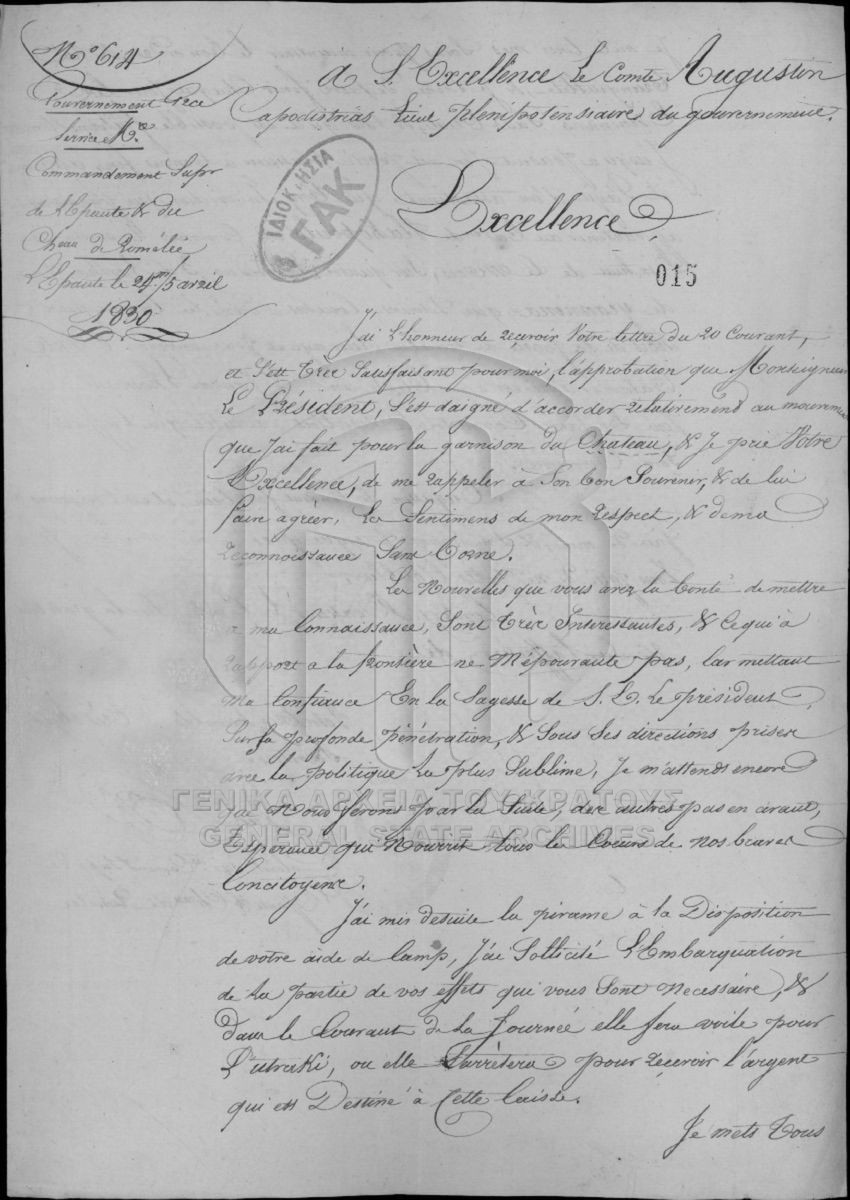 N° 614
Gouvernement Grec
Service M.re
Commandement Supr
de Lépante & du
Cheau de Romélie
Lépante le 24 m/5 avril
1830
A S. Excellence Le Comte Augustin
Capodistrias Lieut plenipotensiaire du gouvernement.
ΙΔΙΟΚΤΗΣΙΑ
ΓΑΚ
Excellence
015
J'ai L'honneur de reçevoir Votre lettre du 20 Courant,
et S'est très Satisfaisant pour moi, l'approbation que Monseigneur
Le Président, S'est daigné d'accorder relativement au mouvement
que J'ai fait pour la garnison du Chateau, & Je prie Votre
Excellence, de me rappeler à Son bon Souvenir, & de lui
faire agréer, Les Sentimens de mon respect, & de ma
reconnoissance Sans borne.
Les Nouvelles que vous avez la bonté de mettre
a ma Connaissance, Sont très Interessantes, & Ce qui à
rapport a la frontière ne M'épouvante pas, Car mettant
Ma Confiance En la Sagesse de S. E. Le président,
Sur Sa profonde pénétration, & Sous Ses directions prises
avec la politique La plus Sublime, Je m'attends encore
que Nous ferons par la Suite, des autres pas en avant,
Esperance qui Nourrit tous les Coeurs de Nos braves
Concitoyens.
ΓΕΝΙΚΑ ΑΡΧΕΙΑ ΤΟΥ ΚΡΑΤΟΥΣ
GENERAL STATE ARCHIVES
J'ai mis desuite la pirame à la Disposition
de votre aide de Camp, J'ai Sollicité L'Embarquation
de La partie de vos effets qui vous Sont Necessaire, &
dans le Courant de La Journée elle fera voile pour
D'utraki, ou elle S'arrêtera pour recevoir l'argent
qui est Destiné à Cette Caisse.
Je mets Tous